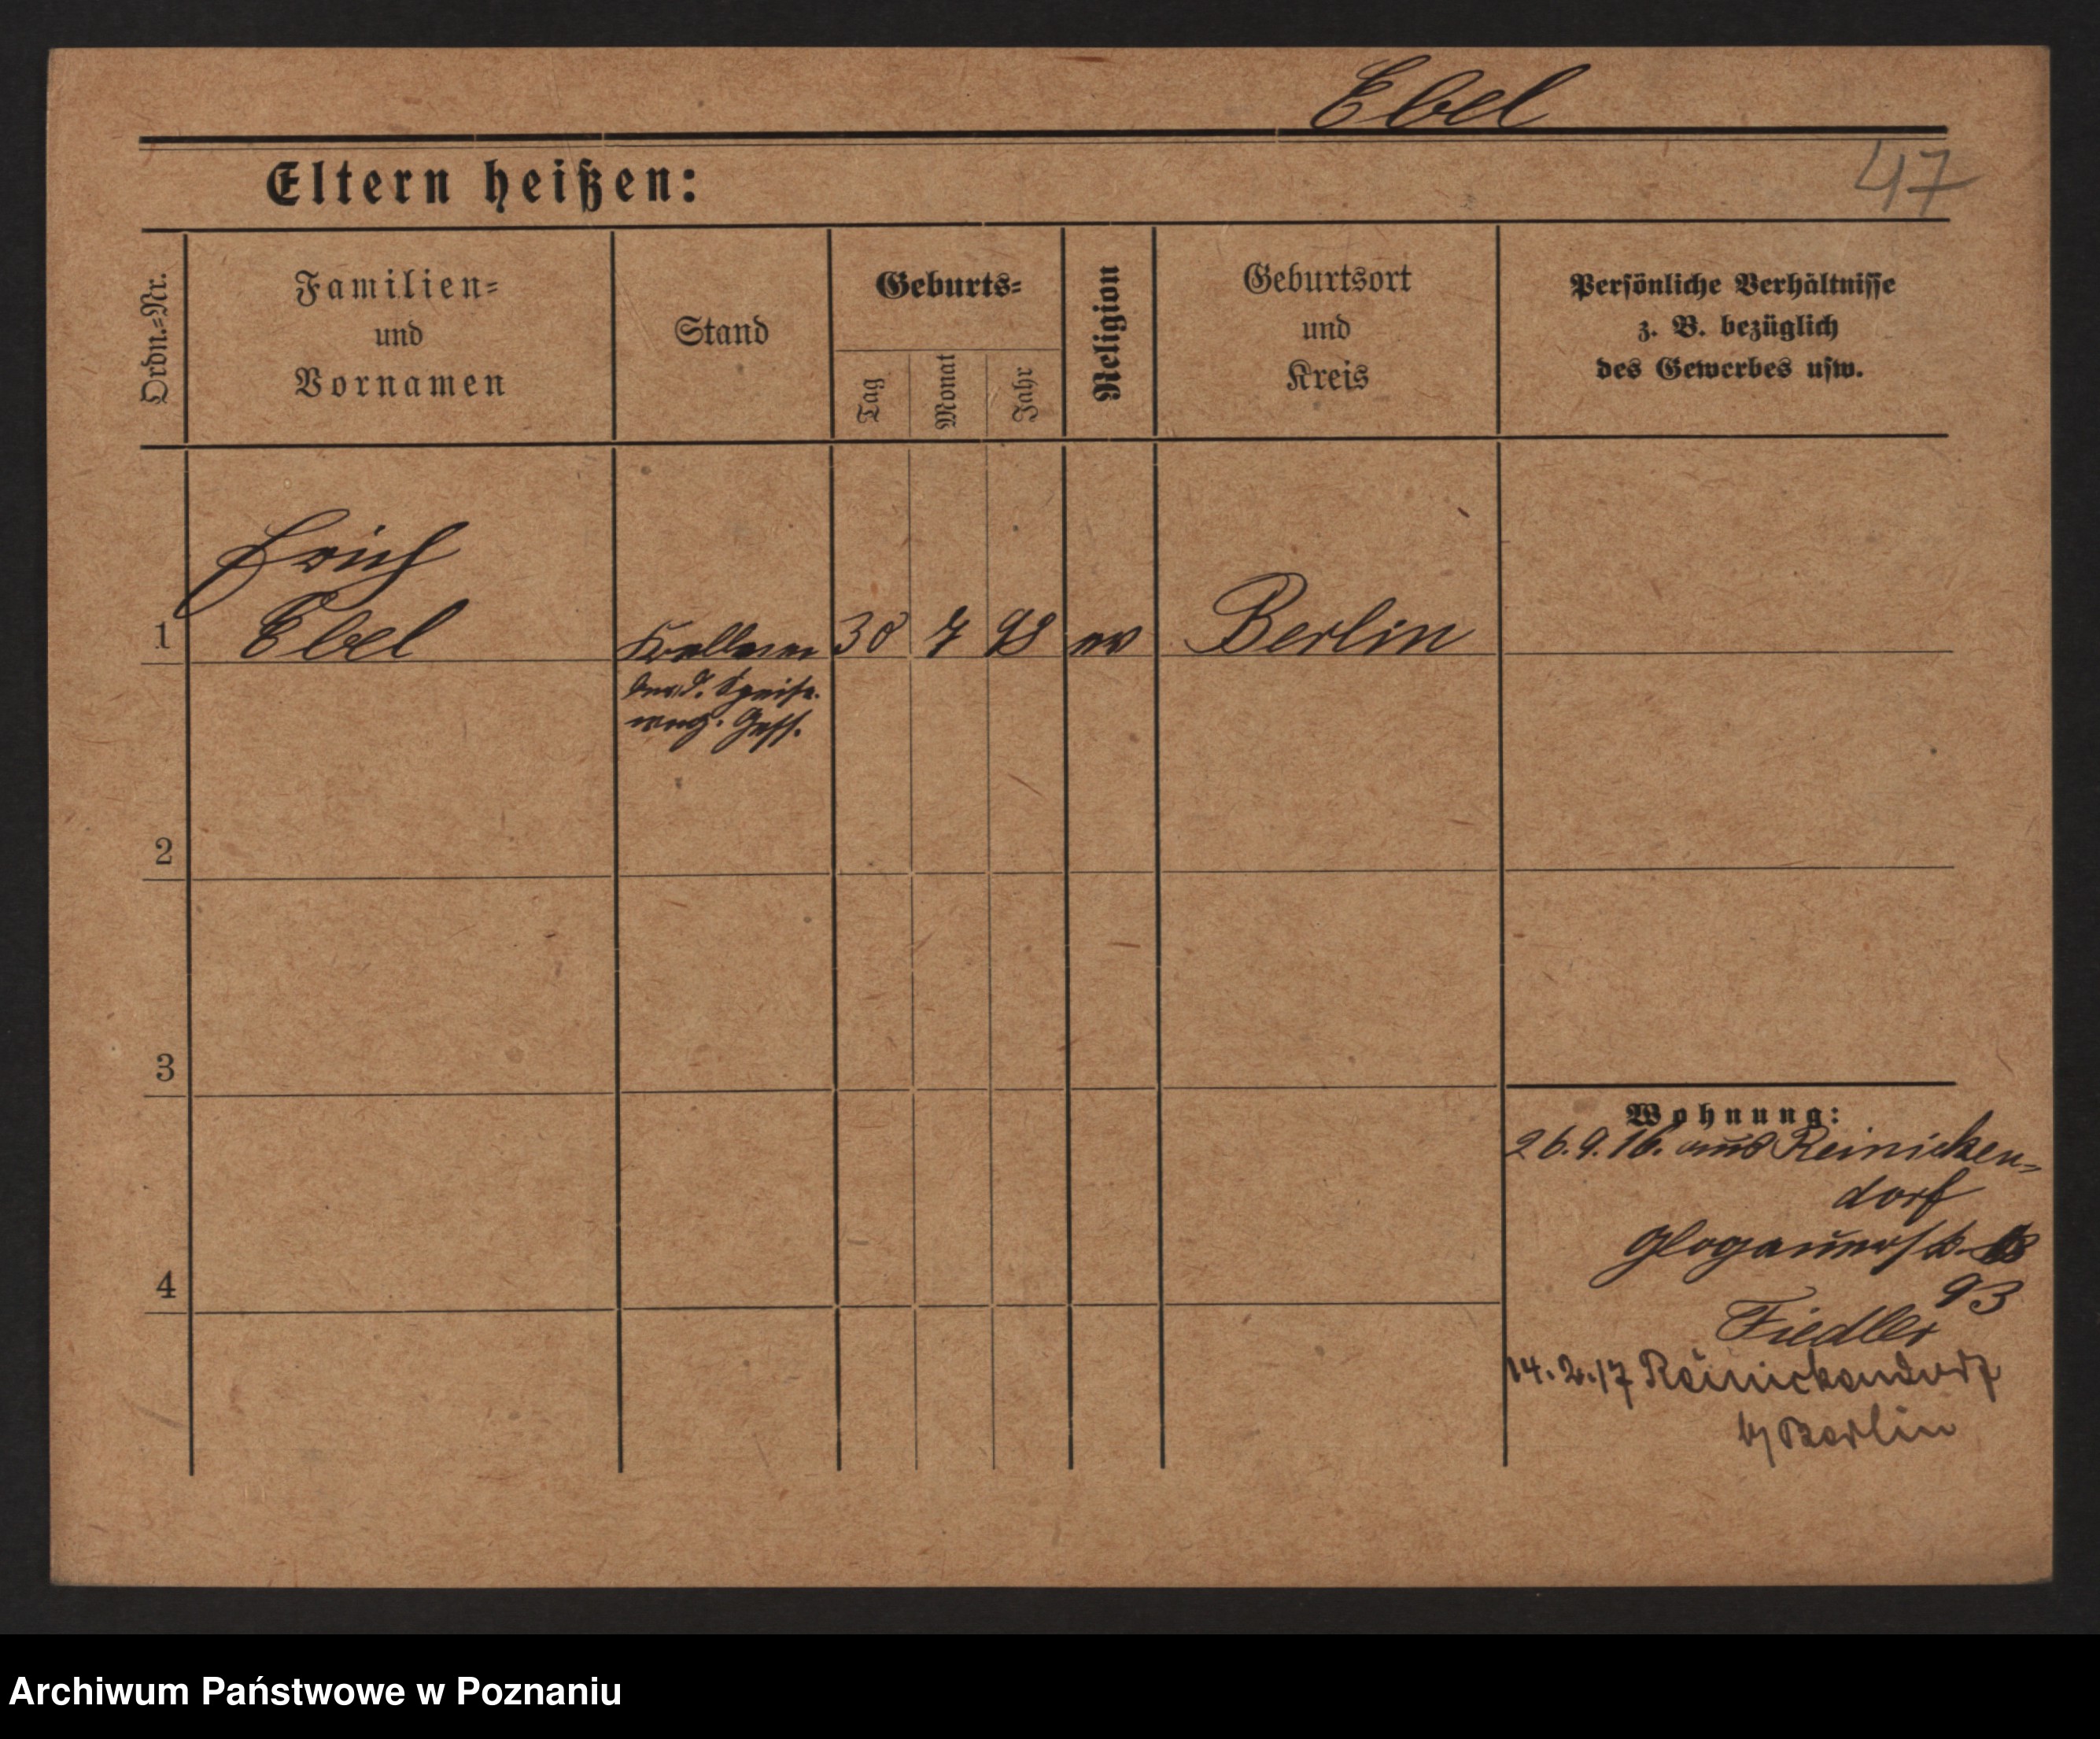 Ebel
47
Eltern heißen:
Ordn.=Nr.
Familien=
und
Vornamen
Stand
Geburts=
Tag
Monat
Jahr
Religion
Geburtsort
und
Kreis
Persönliche Verhältnisse
z. B. bezüglich
des Gewerbes usw.
Erich
1 Ebel Kellner 30 7 98 ev Berlin
der d. Speise
wag. Gess.
2
3
4
Wohnung:
26.9.16. aus Reinicken=
dorf
Glogauerstr.
93
Fiedler
14.2.17 Reinickendorf
b/ Berlin
Archiwum Państwowe w Poznaniu